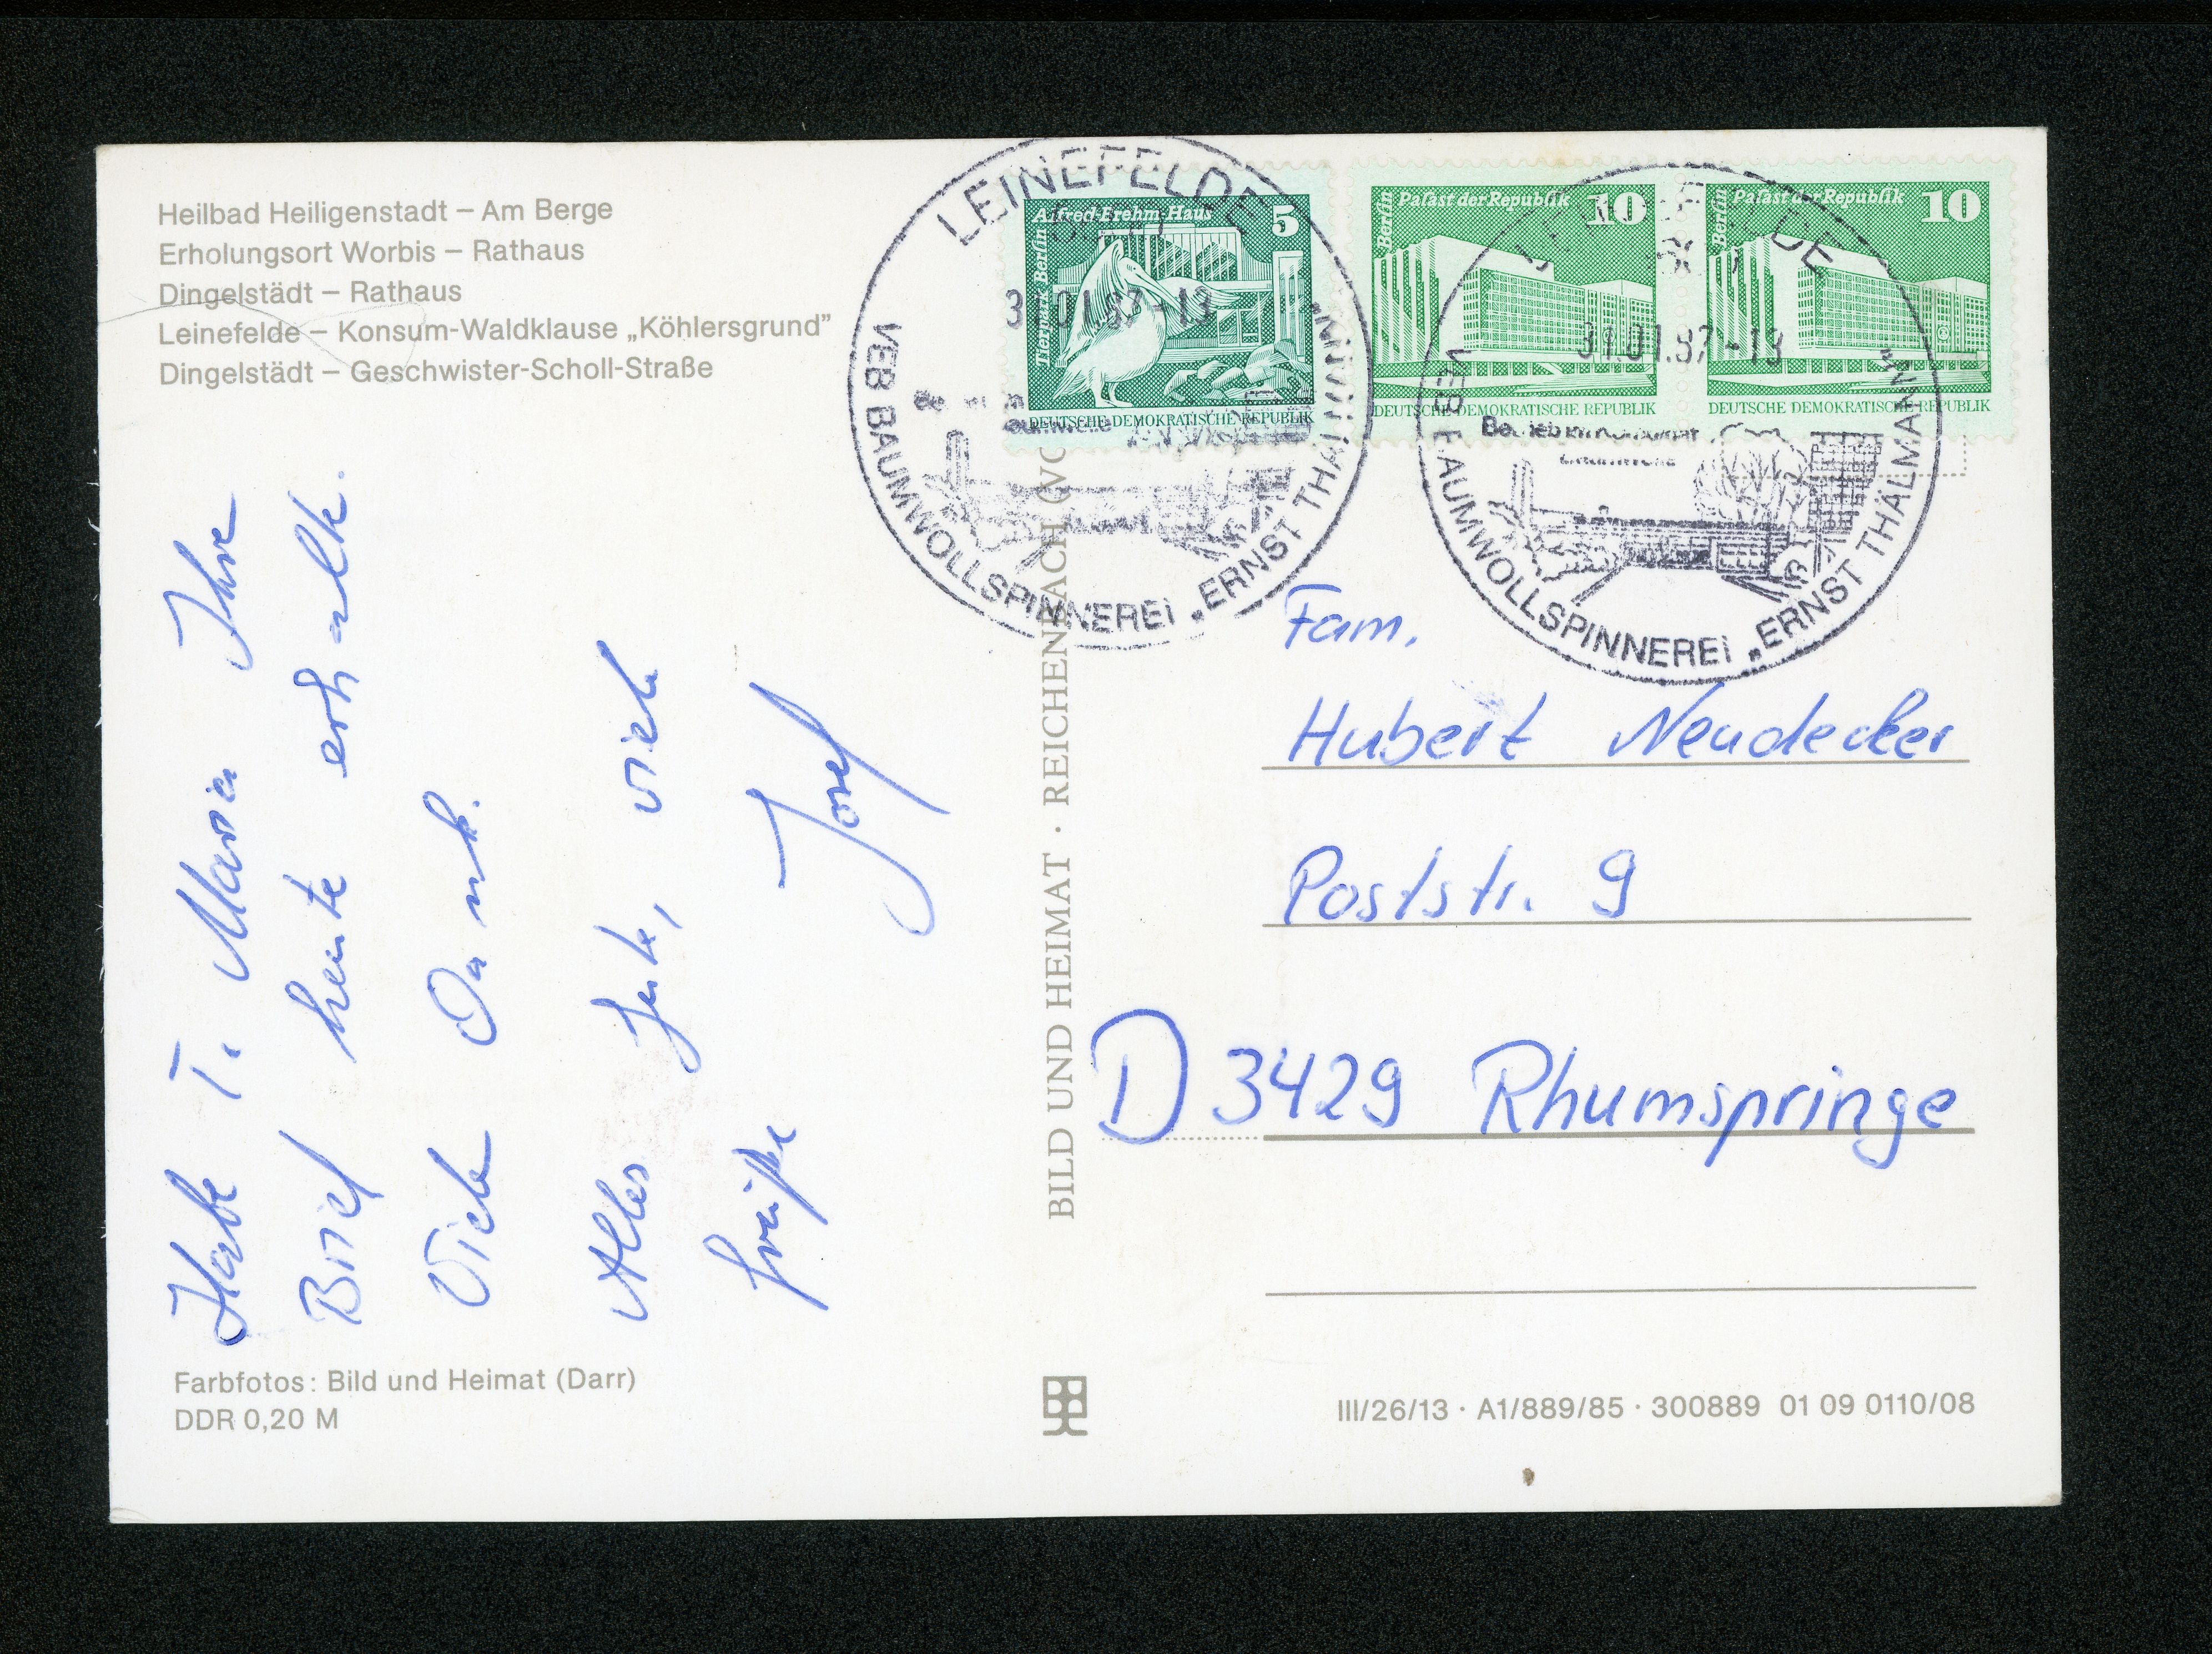 Heilbad Heiligenstadt – Am Berge
Erholungsort Worbis – Rathaus
Dingelstädt – Rathaus
Leinefelde – Konsum-Waldklause „Köhlersgrund”
Dingelstädt – Geschwister-Scholl-Straße
Habe T. Maria Ihre
Brief heute erhalt.
Viele Dank.
Alles Gute, viele
Grüße Josef
Farbfotos: Bild und Heimat (Darr)
DDR 0,20 M
BILD UND HEIMAT · REICHENBACH (VO
LEINEFELDE
31.01.87-13
VEB BAUMWOLLSPINNEREI „ERNST THÄLMANN”
Tierpark Berlin
Alfred-Brehm-Haus 5
DEUTSCHE DEMOKRATISCHE REPUBLIK
Berlin
Palast der Republik 10
DEUTSCHE DEMOKRATISCHE REPUBLIK
Berlin
Palast der Republik 10
DEUTSCHE DEMOKRATISCHE REPUBLIK
LEINEFELDE
31.01.87-13
VEB BAUMWOLLSPINNEREI „ERNST THÄLMANN”
Fam.
Hubert Neudecker
Poststr. 9
D 3429 Rhumspringe
III/26/13 · A1/889/85 · 300889 01 09 0110/08